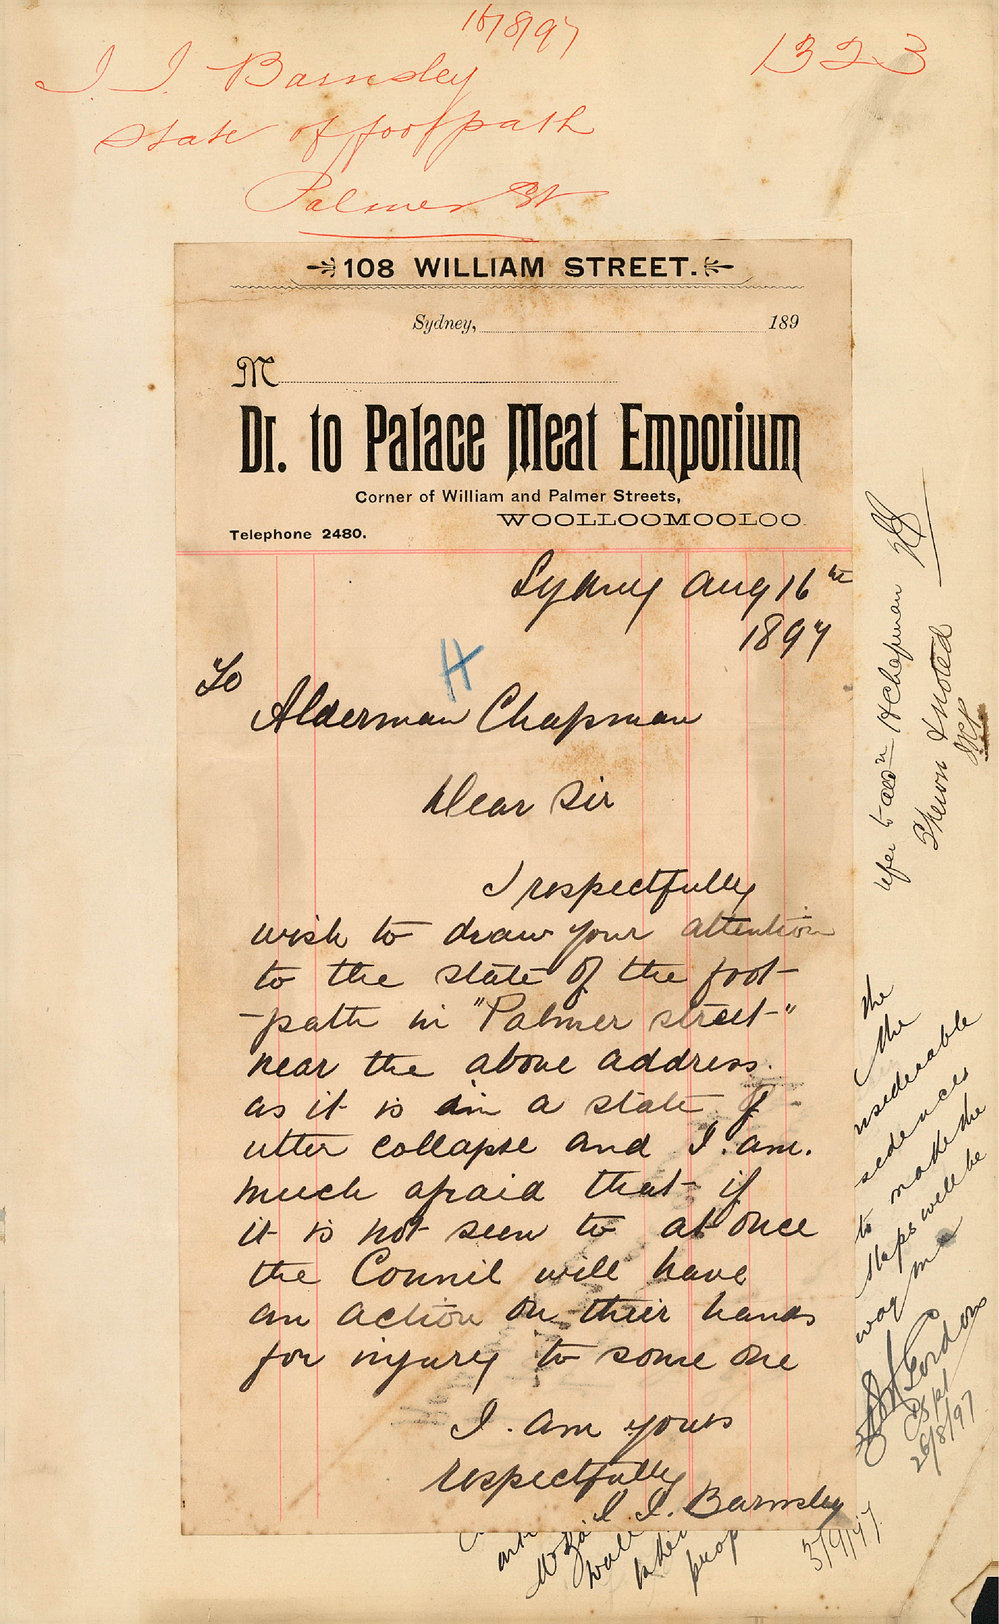 16/8/97
1323
I I Barnsley
State of footpath
Palmer St
108 WILLIAM STREET.
Sydney, 189
M
Dr. to Palace Meat Emporium
Corner of William and Palmer Streets,
WOOLLOOMOOLOO
Telephone 2480.
Sydney Aug 16th
1897
H
To
Alderman Chapman
Dear Sir
I respectfully
wish to draw your attention
to the state of the foot-
-path in "Palmer street"
near the above address.
as it is in a state of
utter collapse and I am.
much afraid that if
it is not seen to at once
the Council will have
an action on their hands
for injury to some one
I. am yours
respectfully
I. I. Barnsley
Refer to Ald'n H Chapman
Shewn & noted
the
the
nsiderable
sedences
to made the
steps will be
way
Gordon
28/8/97
wall
prop
3/9/97